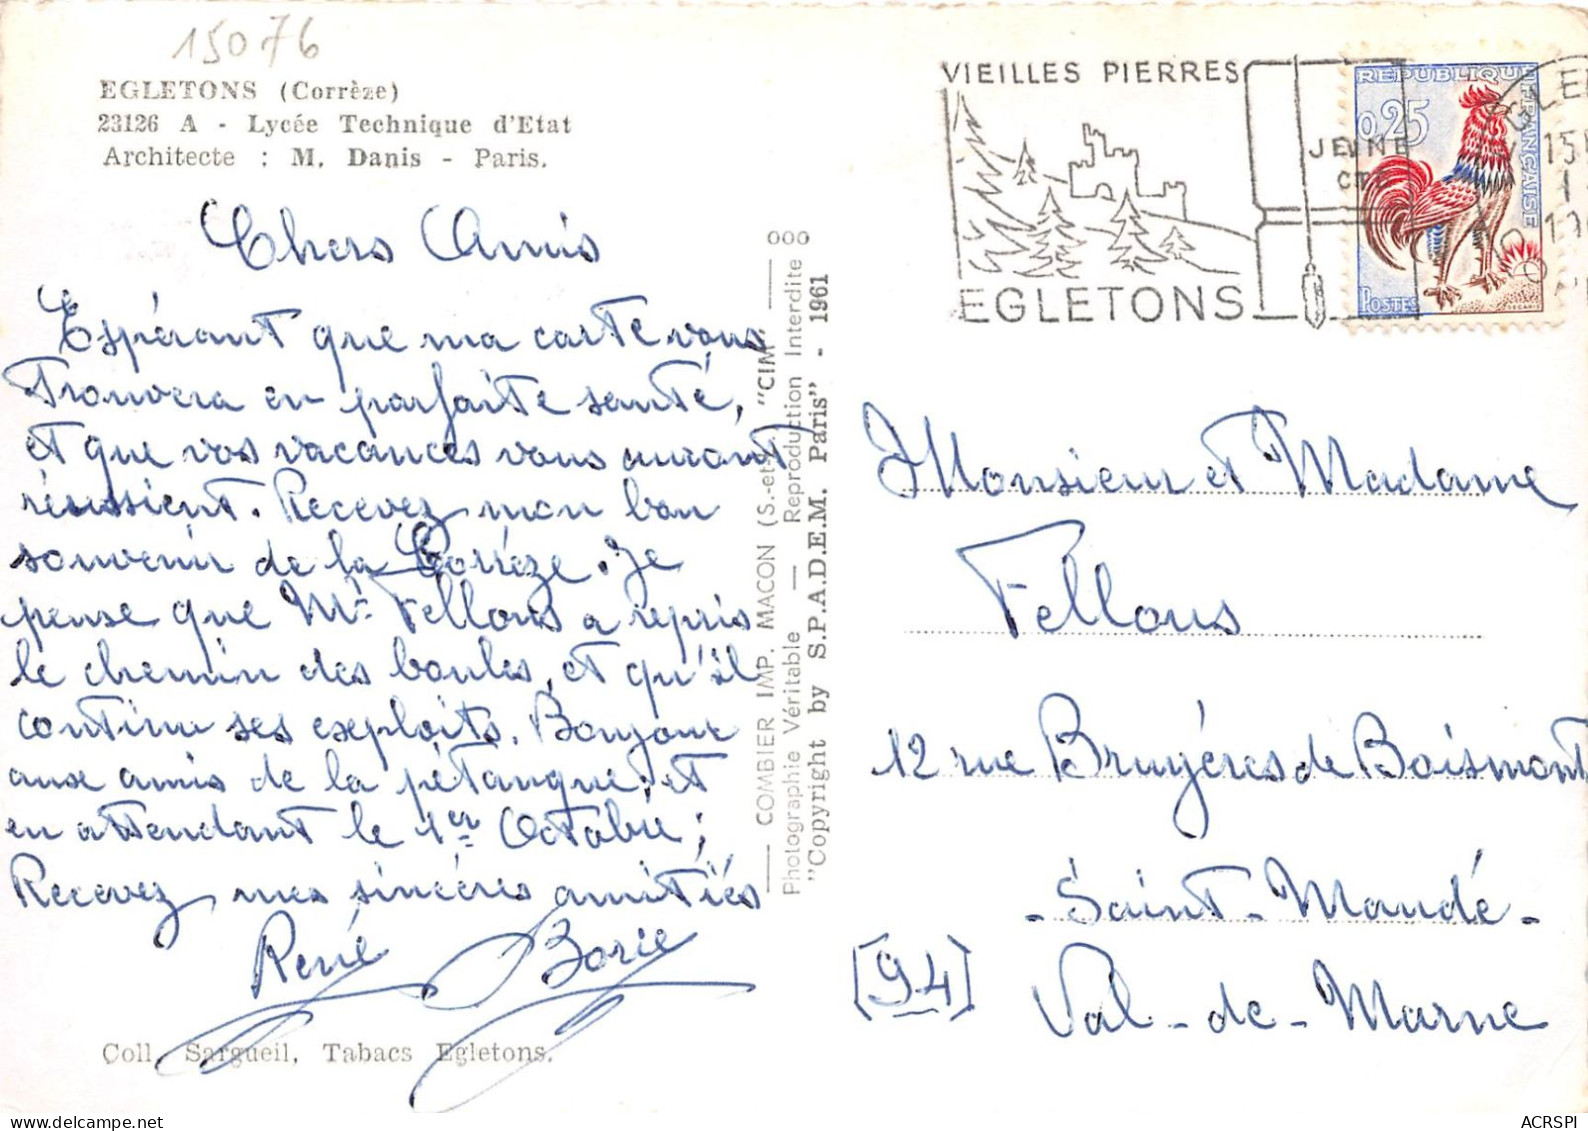 15076
EGLETONS (Corrèze)
23126 A - Lycée Technique d'Etat
Architecte : M. Danis - Paris.
Chers Amis
Espérant que ma carte vous
trouvera en parfaite santé,
et que vos vacances vous auront
réussient. Recevez mon bon
souvenir de la Corrèze. Je
pense que Mr Fellous a repris
le chemin des boules, et qu'il
continu ses exploits. Bonjour
aux amis de la pétanque; et
en attendant le 1er Octobre;
Recevez mes sincères amitiés
René Borie
Coll. Sargueil, Tabacs Egletons.
COMBIER IMP. MACON (S.-et-L.) "CIM"
Photographie Véritable — Reproduction Interdite
"Copyright by S.P.A.D.E.M. Paris" - 1961
VIEILLES PIERRES
JEUNE
CTE
EGLETONS
REPUBLIQUE FRANÇAISE
0,25
POSTES
Monsieur et Madame
Fellous
12 rue Bruyéres de Boismont
- Saint-Maudé -
(94) Val-de-Marne
ACRSPI